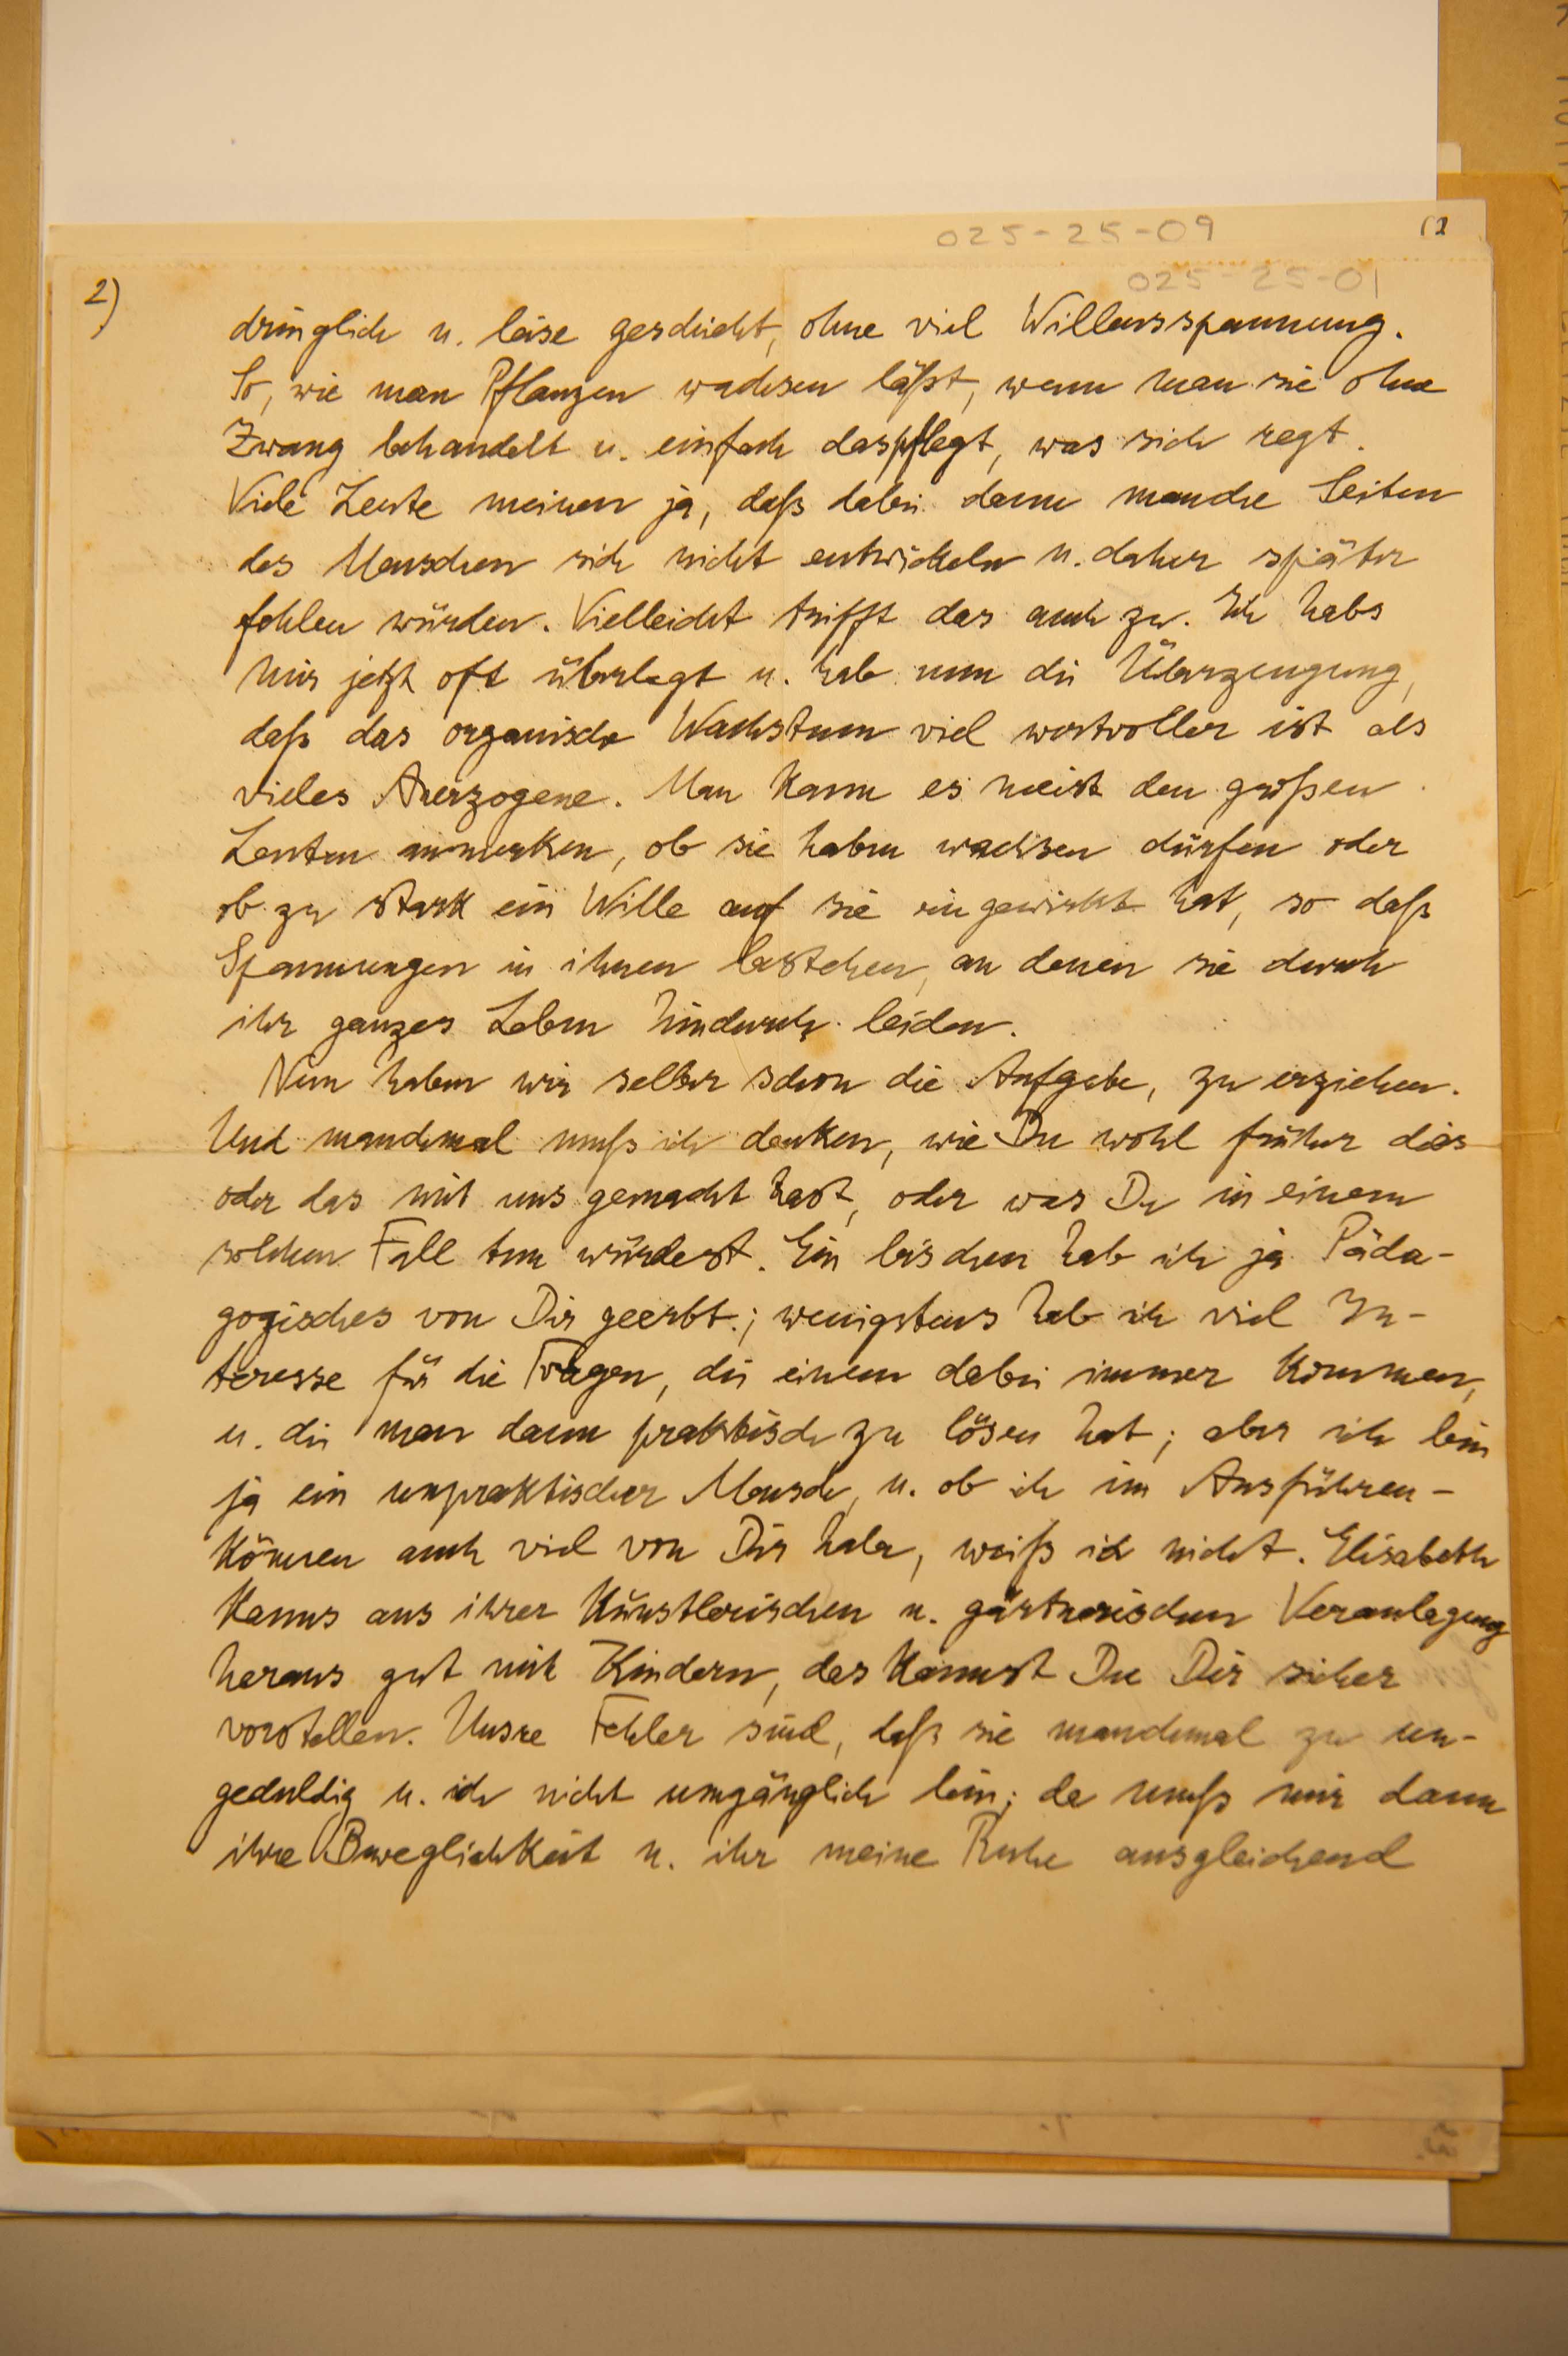 025-25-09
(2
025-25-01
2)
dringlich u. leise geschieht, ohne viel Willensspannung.
So, wie man Pflanzen wachsen läßt, wenn man sie ohne
Zwang behandelt u. einfach das pflegt, was sich regt.
Viele Leute meinen ja, daß dabei dann manche Seiten
des Menschen sich nicht entwickeln u. daher später
fehlen würden. Vielleicht trifft das auch zu. Ich habs
mir jetzt oft überlegt u. hab nun die Überzeugung,
daß das organische Wachstum viel wertvoller ist als
vieles Anerzogene. Man kann es meist den großen
Leuten anmerken, ob sie haben wachsen dürfen oder
ob zu stark ein Wille auf sie eingewirkt hat, so daß
Spannungen in ihnen bestehen, an denen sie durch
ihr ganzes Leben hindurch leiden.
Nun haben wir selber schon die Aufgabe, zu erziehen.
Und manchmal muß ich denken, wie Du wohl früher dies
oder das mit uns gemacht hast, oder was Du in einem
solchen Fall tun würdest. Ein bischen hab ich ja Päda-
gogisches von Dir geerbt; wenigstens hab ich viel In-
teresse für die Fragen, die einem dabei immer kommen,
u. die man dann praktisch zu lösen hat; aber ich bin
ja ein unpraktischer Mensch, u. ob ich im Ausführen-
können auch viel von Dir habe, weiß ich nicht. Elisabeth
kanns aus ihrer künstlerischen u. gärtnerischen Veranlagung
heraus gut mit Kindern, das kannst Du Dir sicher
vorstellen. Unsre Fehler sind, daß sie manchmal zu un-
geduldig u. ich nicht umgänglich bin; da muß mir dann
ihre Beweglichkeit u. ihr meine Ruhe ausgleichend